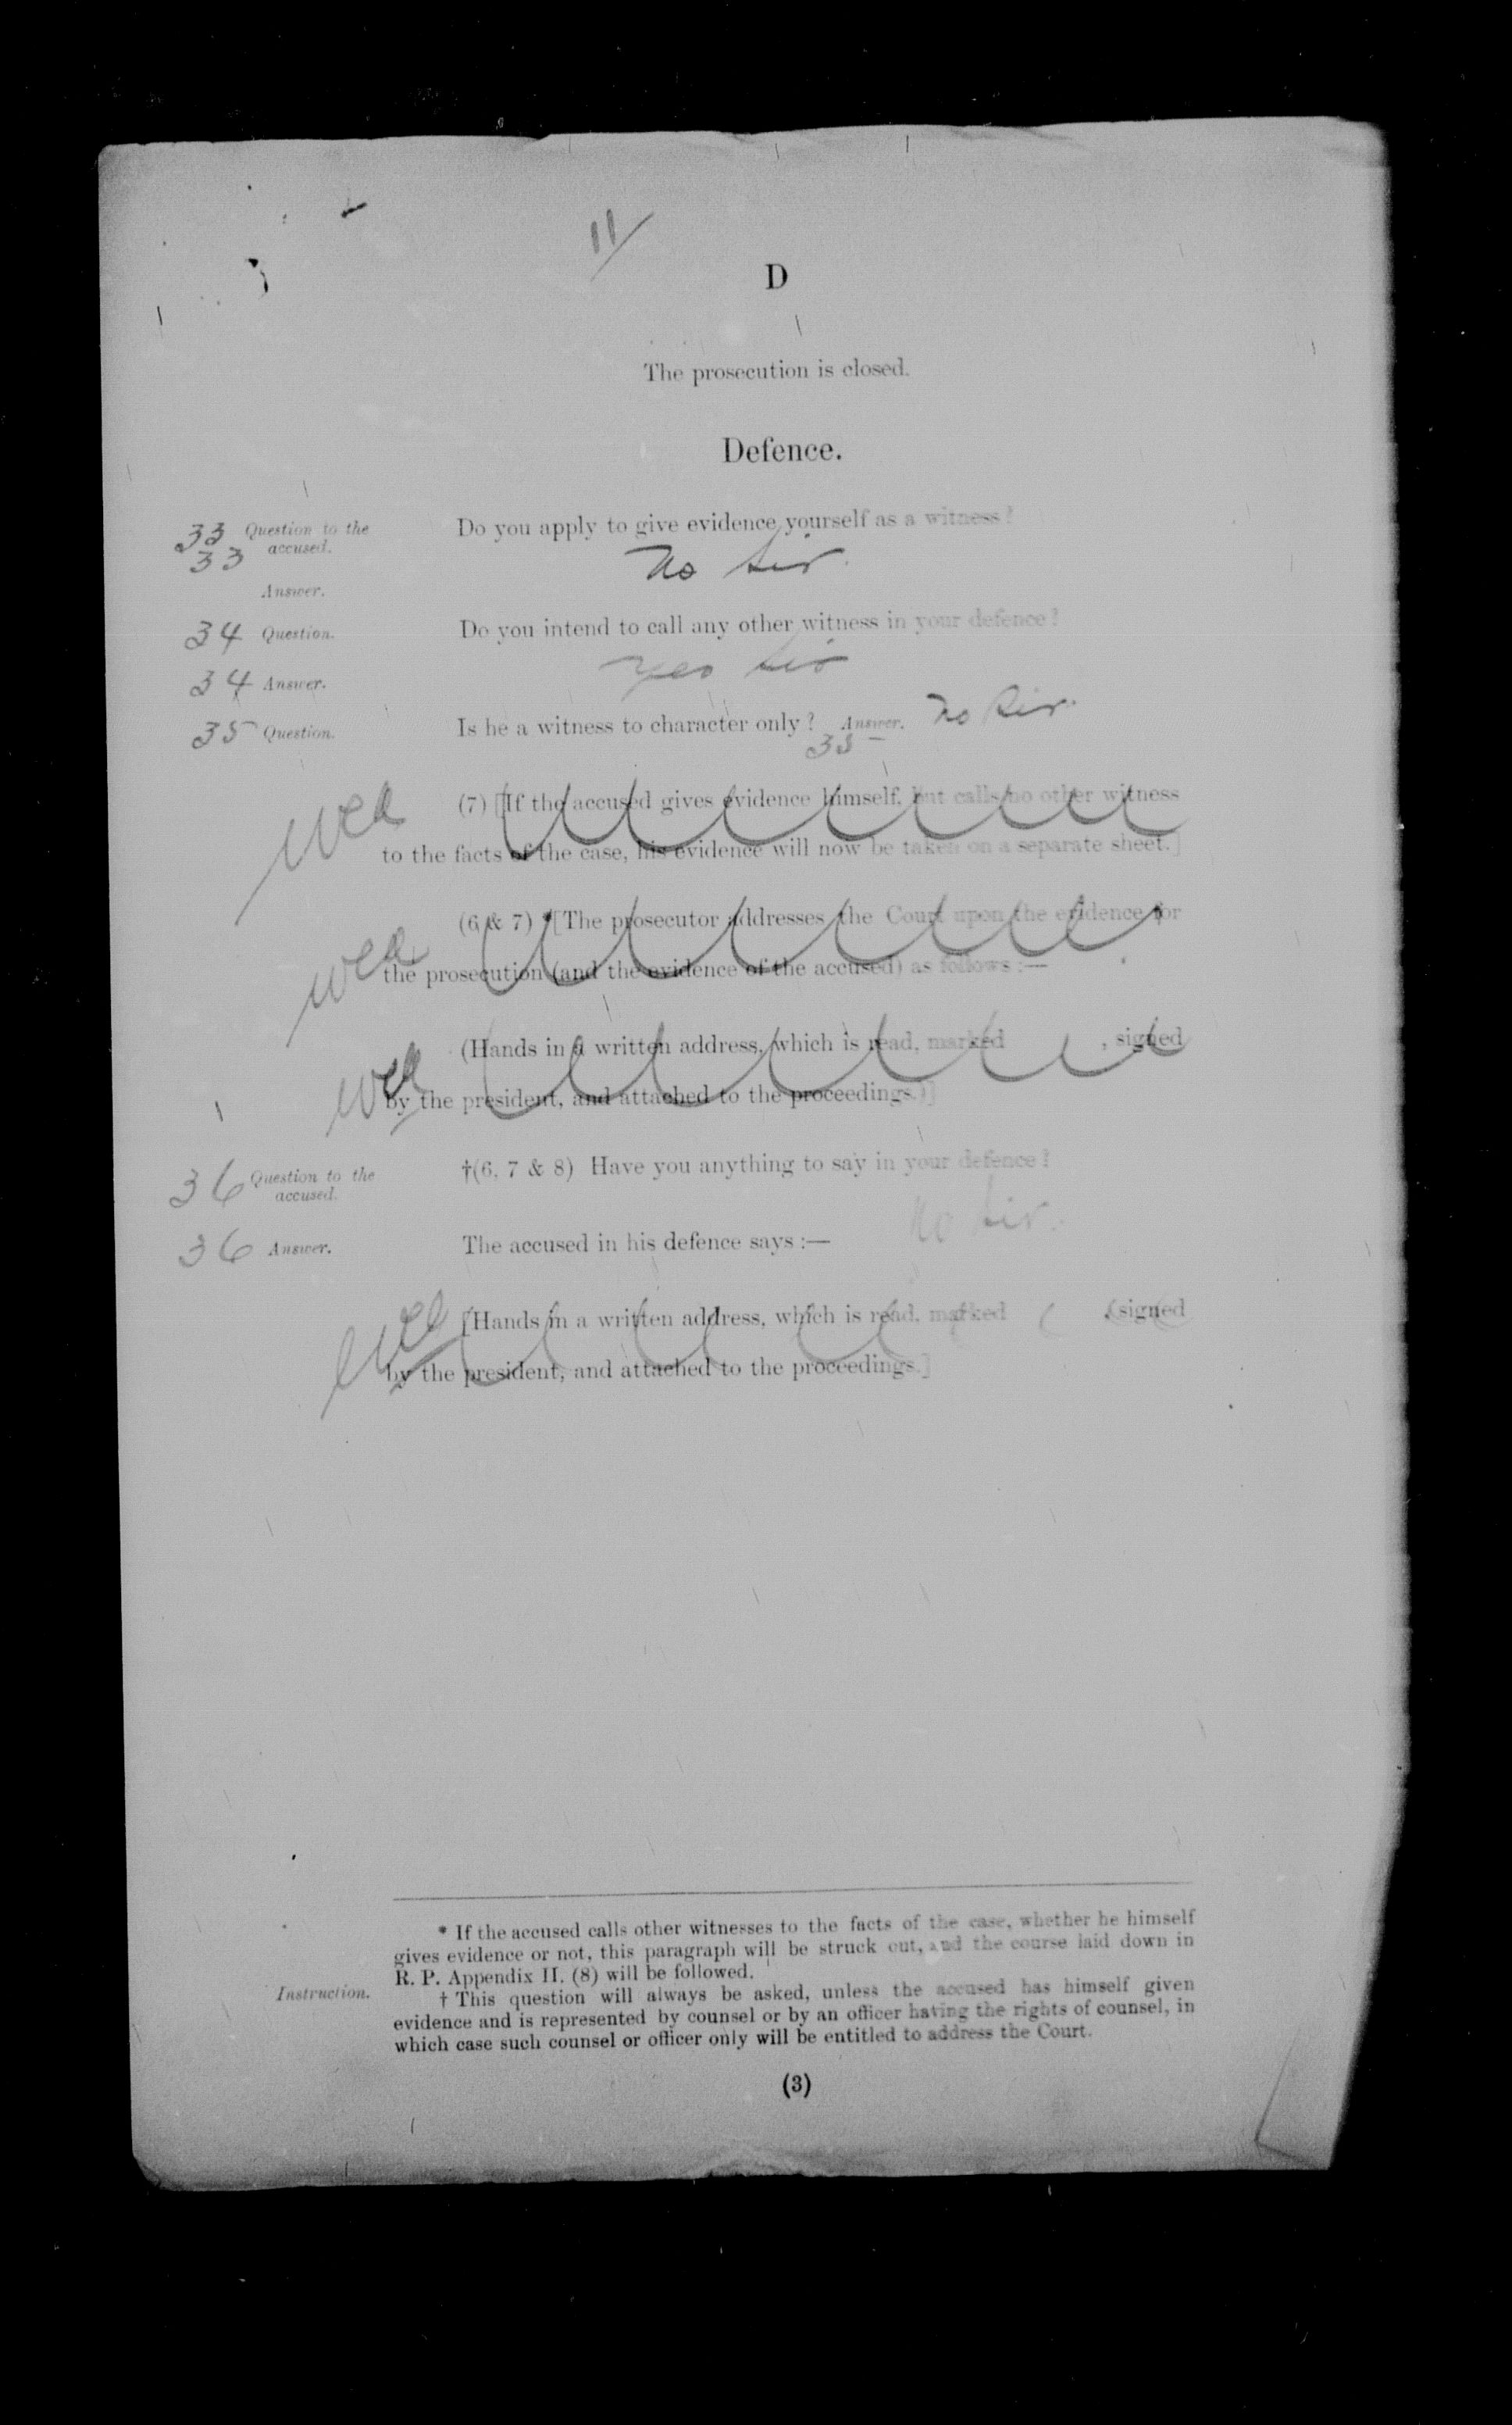 11/
D
The prosecution is closed.
Defence.
33 Question to the accused. Do you apply to give evidence yourself as a witness?
33 Answer. No Sir.
34 Question. Do you intend to call any other witness in your defence?
34 Answer. Yes Sir
35 Question. Is he a witness to character only? Answer. No Sir.
35
(7) [If the accused gives evidence himself, but calls no other witness
to the facts of the case, his evidence will now be taken on a separate sheet.]
(6 & 7) *[The prosecutor addresses the Court upon the evidence for
the prosecution (and the evidence of the accused) as follows :—
(Hands in a written address, which is read, marked , signed
by the president, and attached to the proceedings.)]
36 Question to the accused. †(6, 7 & 8) Have you anything to say in your defence?
No Sir.
36 Answer. The accused in his defence says :—
[Hands in a written address, which is read, marked , signed
by the president, and attached to the proceedings.]
* If the accused calls other witnesses to the facts of the case, whether he himself
gives evidence or not, this paragraph will be struck out, and the course laid down in
R. P. Appendix II. (8) will be followed.
Instruction. † This question will always be asked, unless the accused has himself given
evidence and is represented by counsel or by an officer having the rights of counsel, in
which case such counsel or officer only will be entitled to address the Court.
(3)